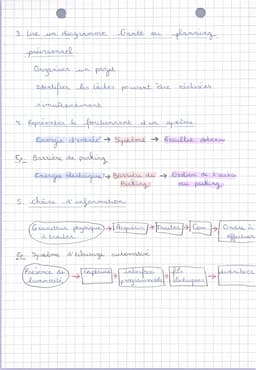 3. Lire un diagramme Gantt ou planning
prévisionnel
Organiser un projet
Identifier les tâches pouvant être réalisées
simultanément
4. Représenter le fonctionnement d'un système
Energie d'entrée → Système → Résultat obtenu
Ex_ Barrière de parking
Energie électrique → Barrière de → Gestion de l'accès
Parking au parking
5. Chaîne d'information
Grandeur physique → Acquérir → Traiter → Com → Ordre à
à traiter effectuer
Ex_ Système d'éclairage automatisé
Présence de → Capteurs → interface → fils
luminosité programmable électriques